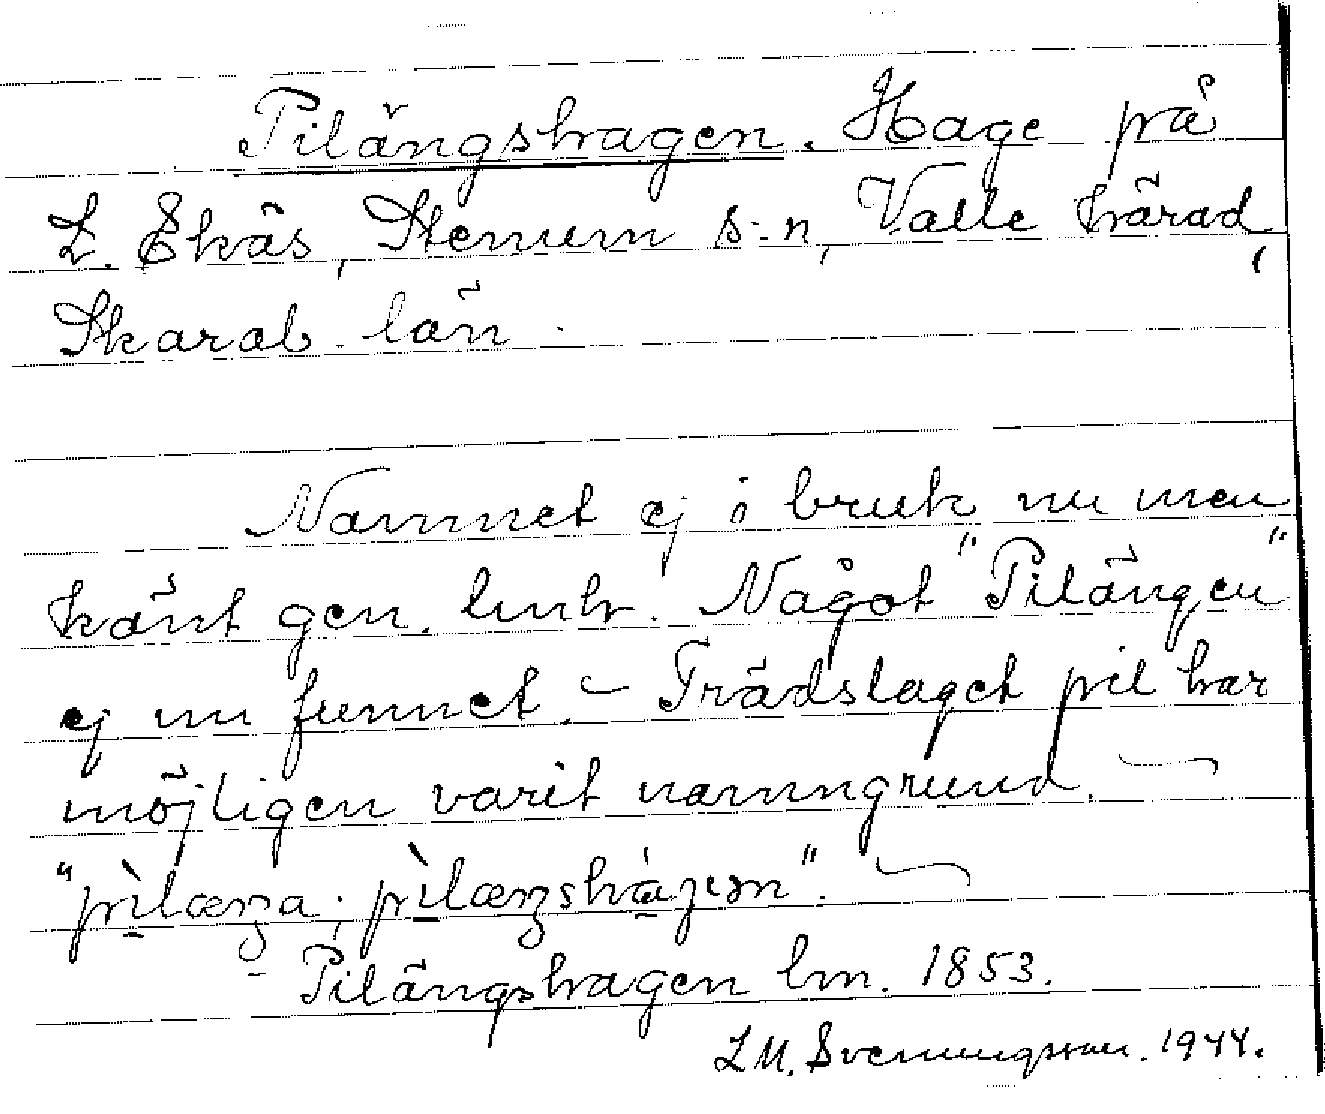 Pilängshagen. Hage på
L. Ekäs, Stenum s:n, Valle härad,
Skarab. län.
Namnet ej i bruk nu men
känt gen. lmh. Något "Pilängen"
ej nu funnet. – Trädslaget pil har
möjligen varit namngrund. –
"pìlæŋa; pìlæŋshàgen". –
Pilängshagen lm. 1853.
L M. Svenungsson. 1944.